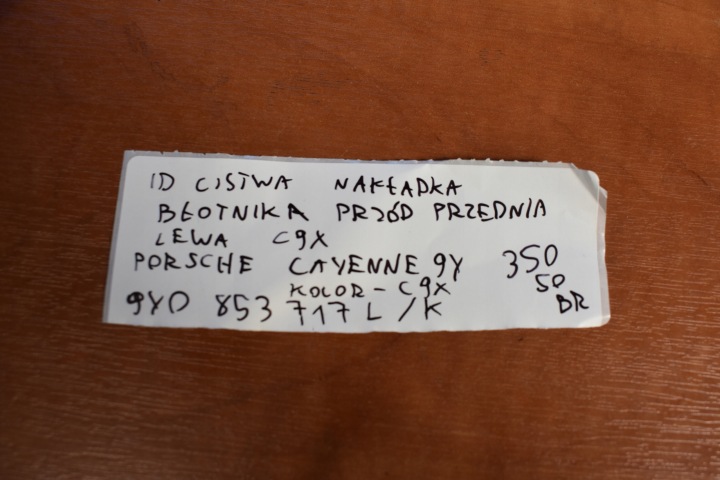 ID CISTWA NAKŁADKA
BŁOTNIKA PRZÓD PRZEDNIA
LEWA C9X
PORSCHE CAYENNE 9Y 350
KOLOR - C9X 50
9Y0 853 717 L /K BR